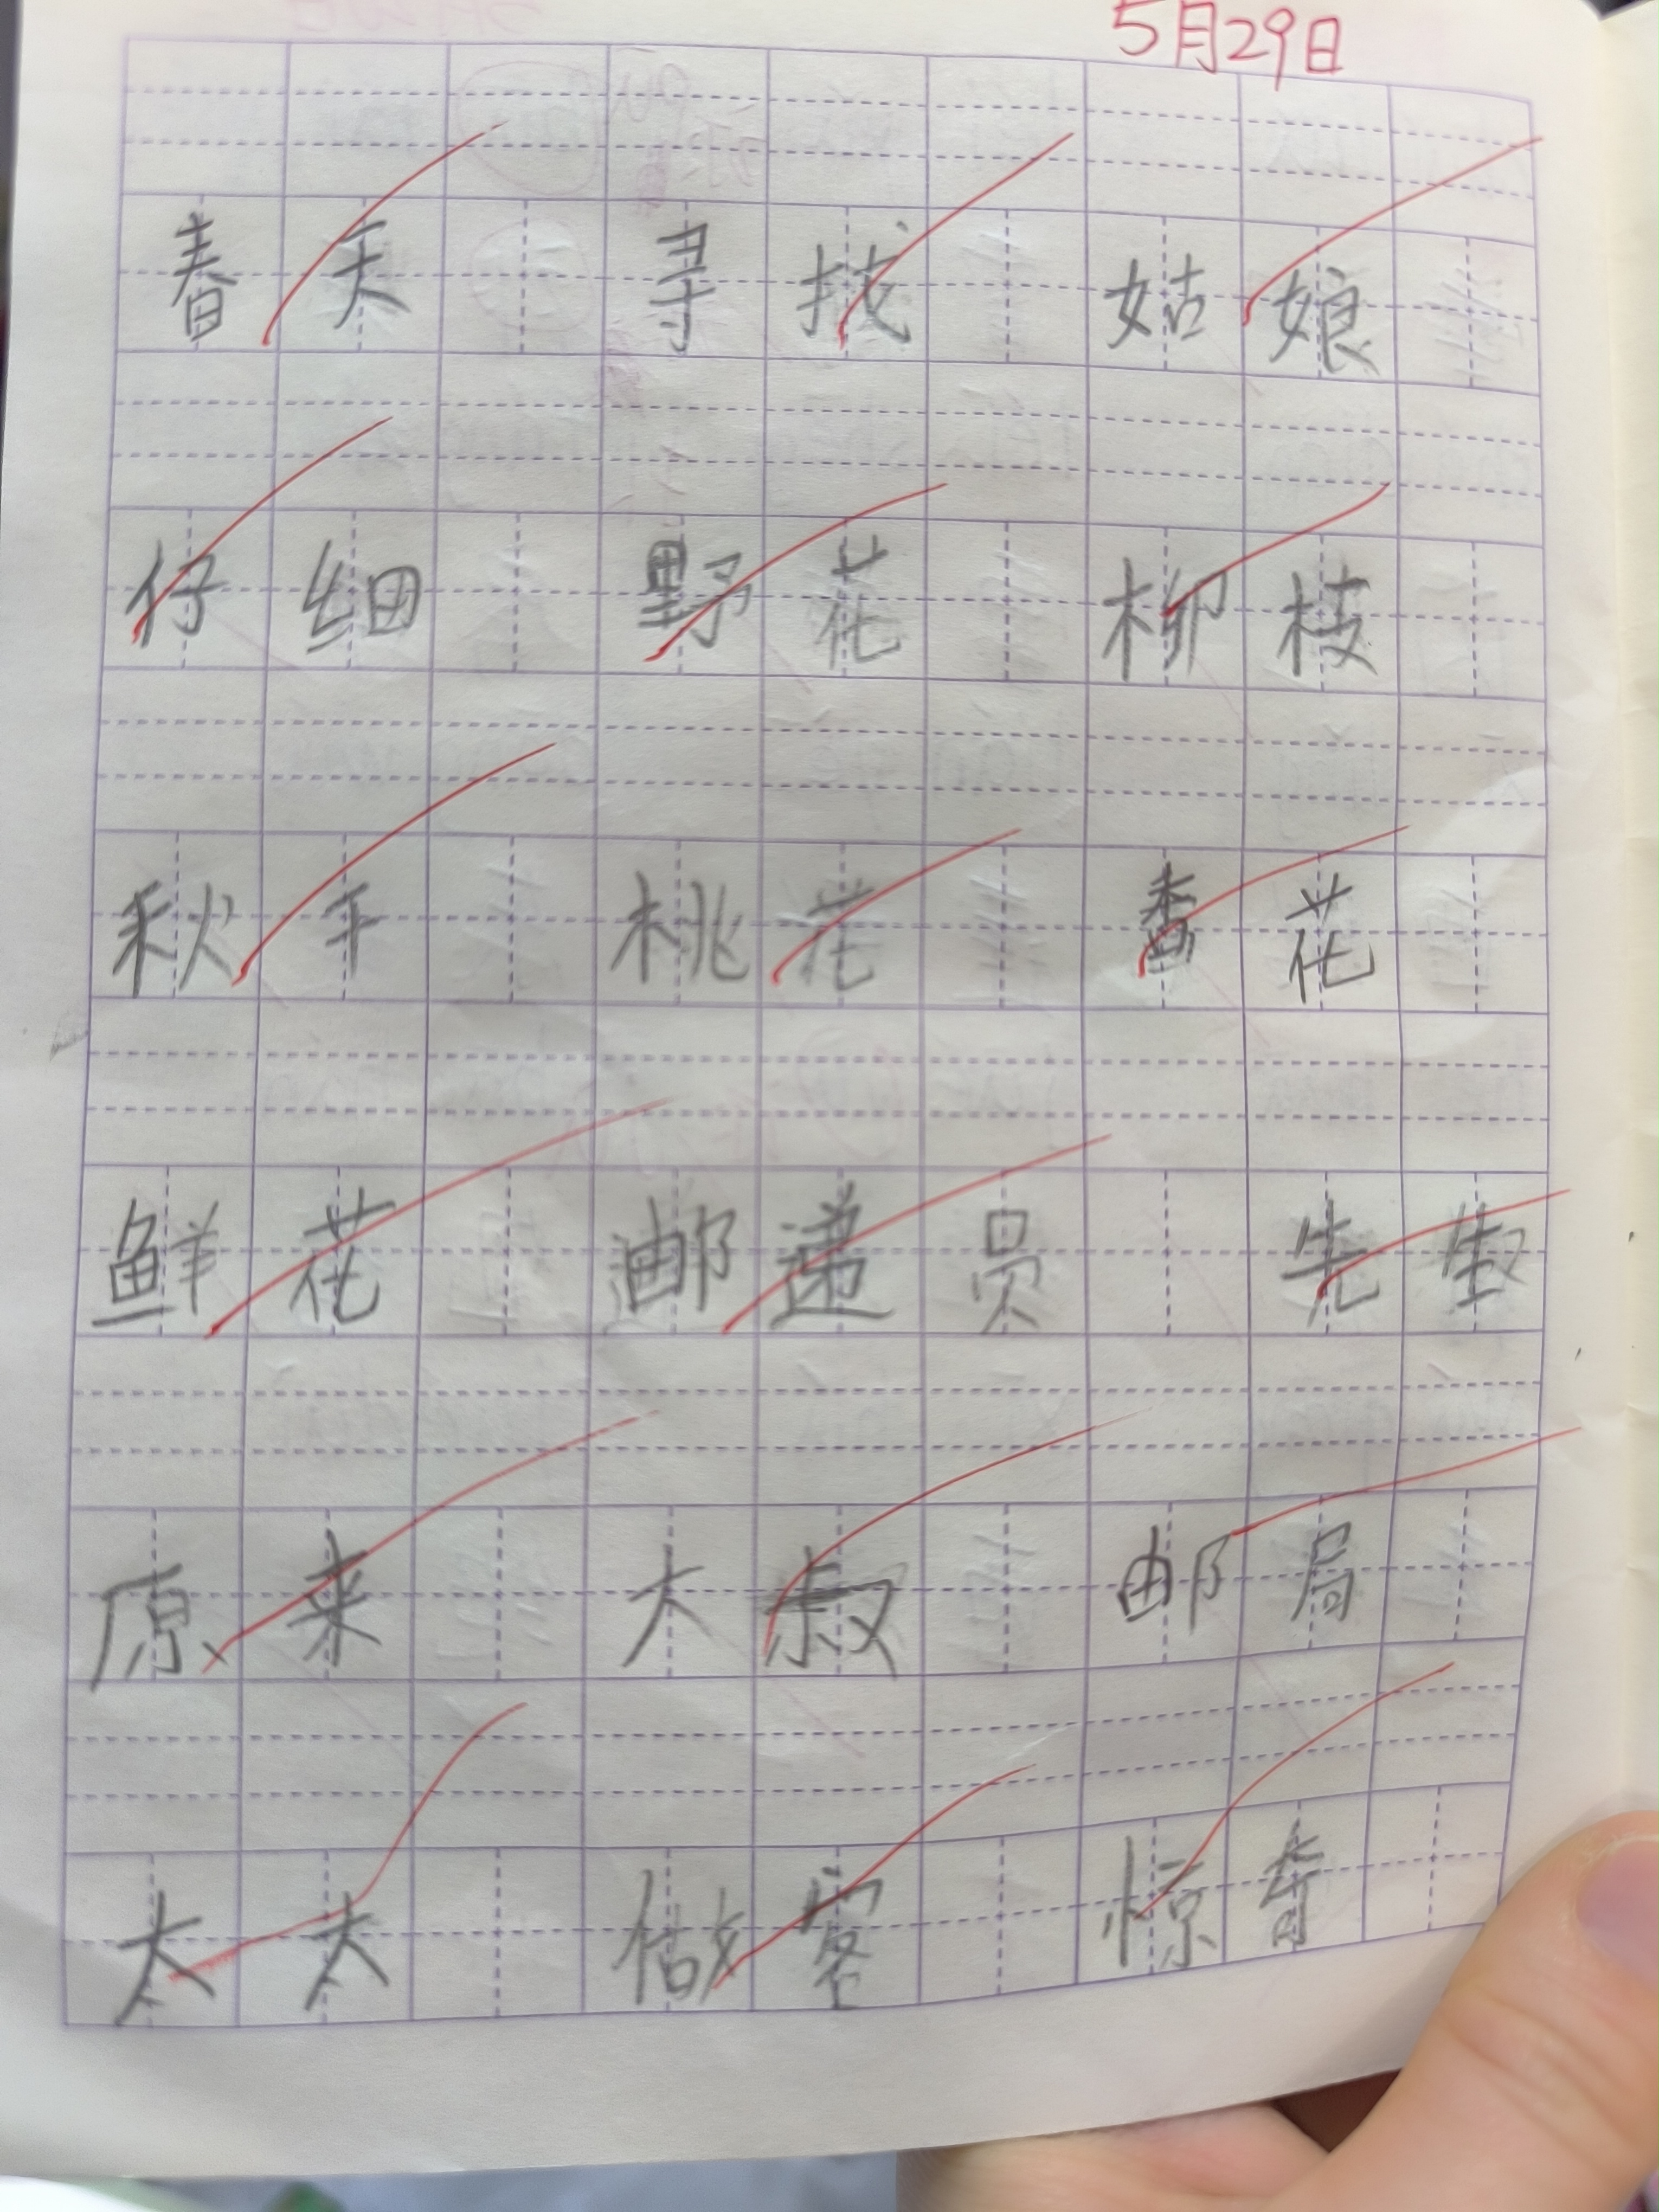 5月29日
春天 寻找 姑娘
仔细 野花 柳枝
秋千 桃花 香花
鲜花 邮递员 先
原来 大叔 邮局
太太 做客 惊奇